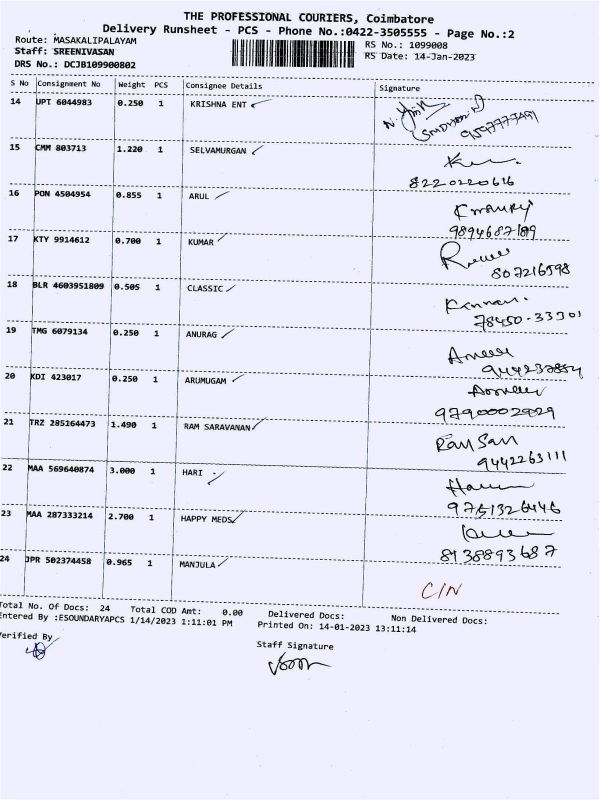 THE PROFESSIONAL COURIERS, Coimbatore
Delivery Runsheet - PCS - Phone No.:0422-3505555 - Page No.:2
Route: MASAKALIPALAYAM
RS No.: 1099008
Staff: SREENIVASAN
RS Date: 14-Jan-2023
DRS No.: DCJB109900802
S No Consignment No Weight PCS Consignee Details Signature
14 UPT 6044983 0.250 1 KRISHNA ENT
9597777491
15 CMM 803713 1.220 1 SELVAMURGAN
8220220616
16 PON 4504954 0.855 1 ARUL
9894687189
17 KTY 9914612 0.700 1 KUMAR
807216598
18 BLR 4603951809 0.505 1 CLASSIC
Kannan.
78450-33301
19 TMG 6079134 0.250 1 ANURAG
20 KDI 423017 0.250 1 ARUMUGAM
9790002929
21 TRZ 285164473 1.490 1 RAM SARAVANAN
Ram San
9442263111
22 MAA 569640874 3.000 1 HARI
9751326446
23 MAA 287333214 2.700 1 HAPPY MEDS
8938893687
24 JPR 502374458 0.965 1 MANJULA
C/N
Total No. Of Docs: 24 Total COD Amt: 0.00 Delivered Docs: Non Delivered Docs:
Entered By :ESOUNDARYAPCS 1/14/2023 1:11:01 PM Printed On: 14-01-2023 13:11:14
Verified By
Staff Signature